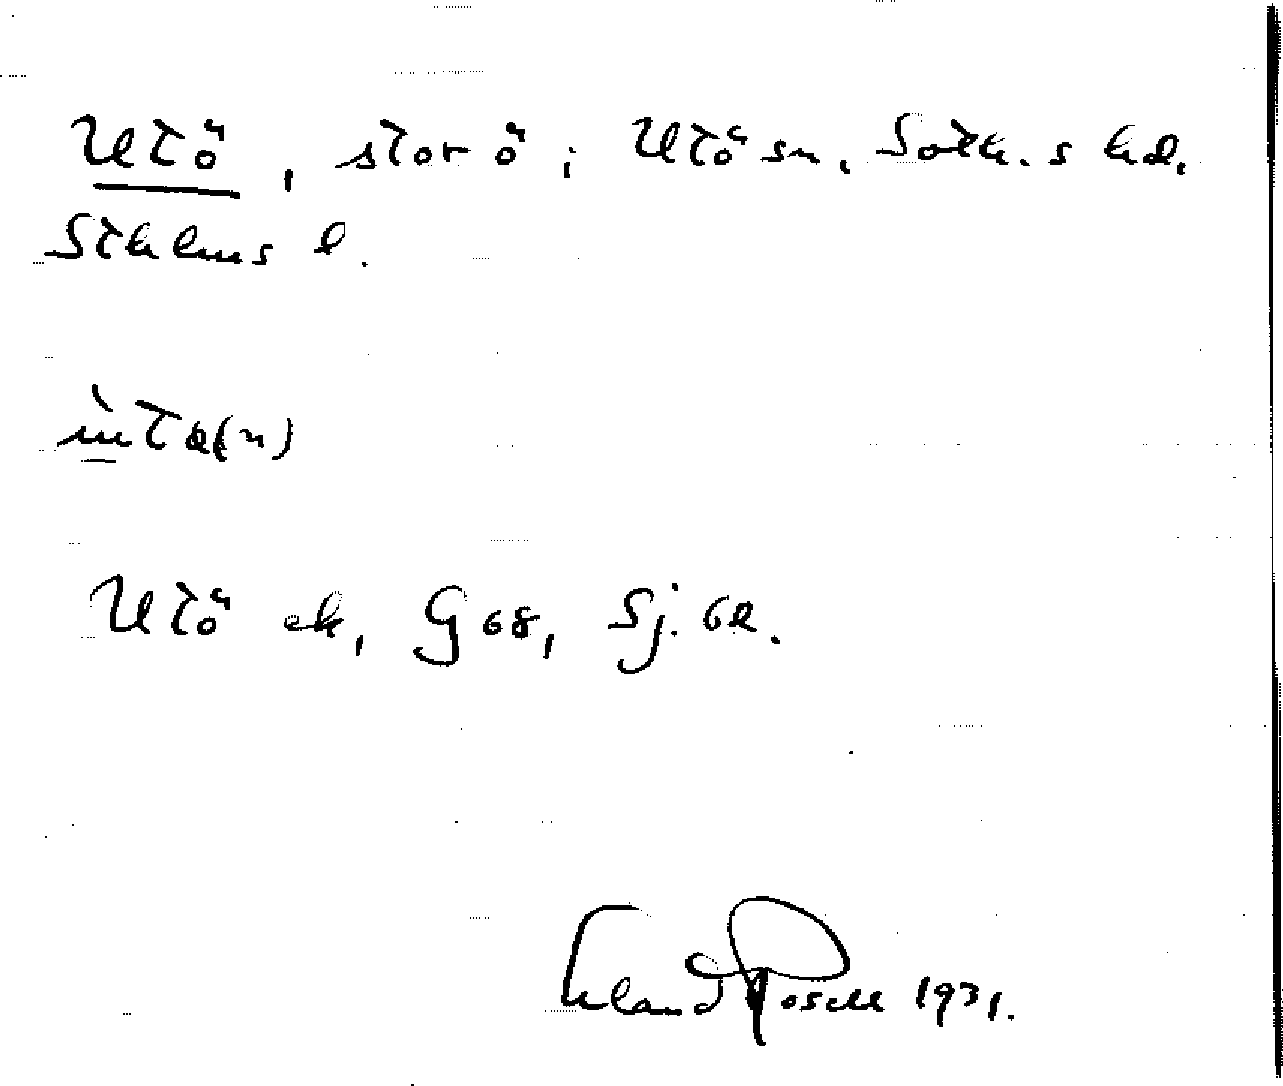 Utö, stor ö; Utö sn, Soth. s hd,
Sthlms l.
ùtø(n)
Utö ek, G 68, Sj. 62.
Erland Rosell 1931.